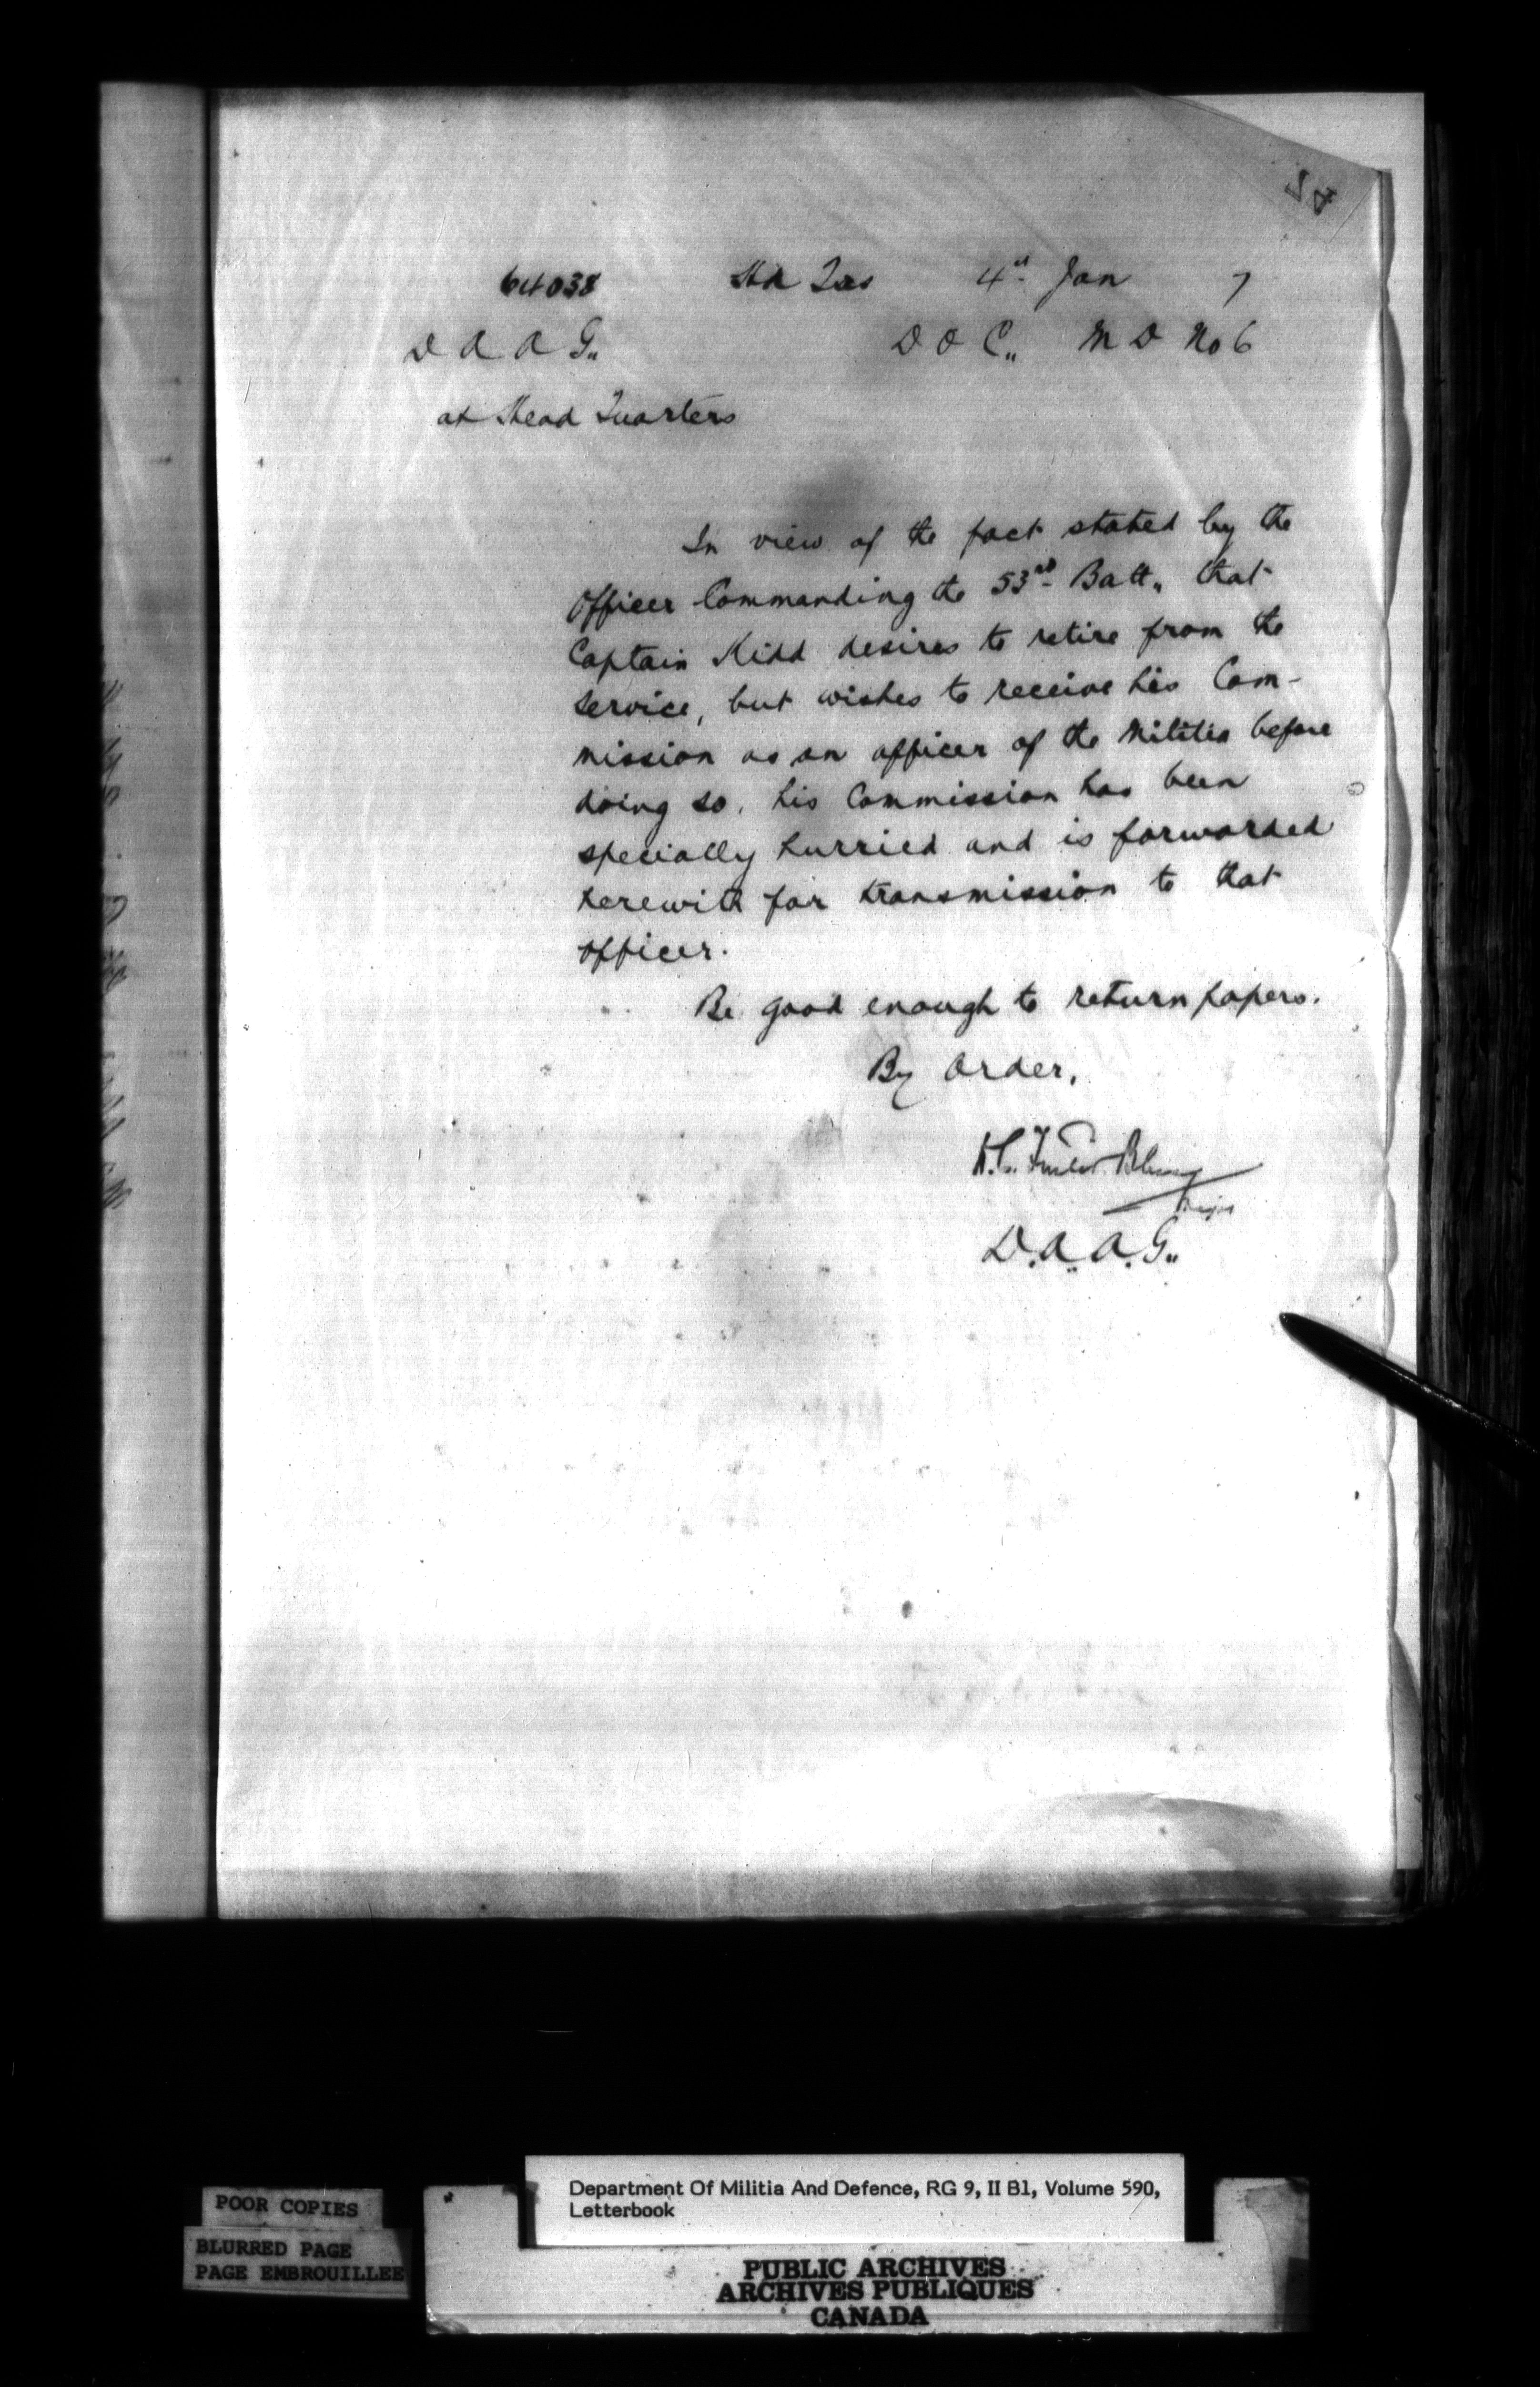 64038 Hd Qrs 4th Jan 7
D A A G.. D O C.. M D No 6
at Head Quarters
In view of the fact stated by the
Officer Commanding the 53rd Batt.. that
Captain Kidd desires to retire from the
service, but wishes to receive his Com-
mission as an officer of the Militia before
doing so, his Commission has been
specially hurried and is forwarded
herewith for transmission to that
officer.
Be good enough to return papers.
By Order,
Major
D.A.A.G..
Department Of Militia And Defence, RG 9, II B1, Volume 590,
Letterbook
POOR COPIES
BLURRED PAGE
PAGE EMBROUILLEE
PUBLIC ARCHIVES
ARCHIVES PUBLIQUES
CANADA